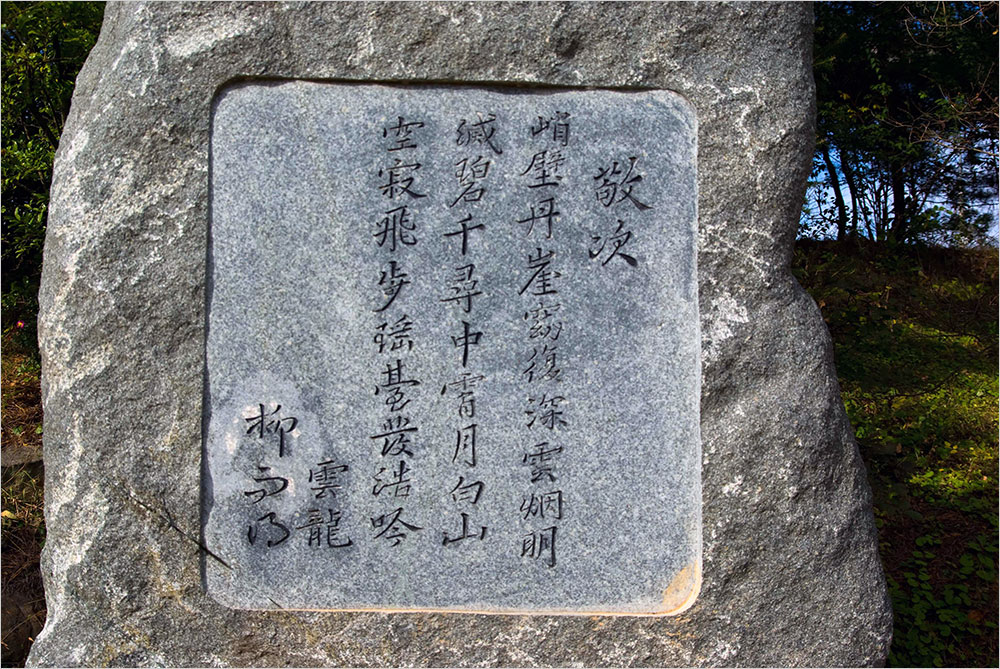 敬次
峭壁丹崖窈復深雲烟明
滅碧千尋中宵月白山
空寂飛步瑤臺發浩吟
雲龍
柳而得